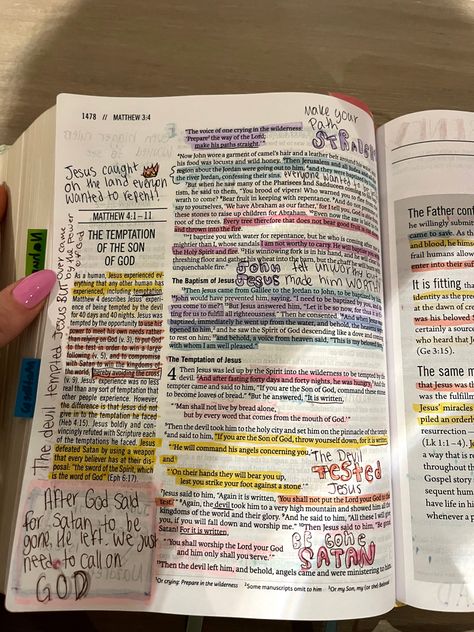 1478 // MATTHEW 3:4
Jesus caught
on the land everyon
wanted to repent!
MATTHEW 4:1–11
THE TEMPTATION
OF THE SON
OF GOD
As a human, Jesus experienced ev-
erything that any other human has
experienced, including temptation.
Matthew 4 describes Jesus' experi-
ence of being tempted by the devil
for 40 days and 40 nights. Jesus was
tempted by the opportunity to use his
power to meet his own needs rather
than relying on God (v. 3), to put God
to the test in order to win a large
following (v. 5), and to compromise
with Satan to win the kingdoms of
the world, thereby avoiding the cross
(v. 9). Jesus' experience was no less
real than any sort of temptation that
other people experience. However,
the difference is that Jesus did not
give in to the temptation he faced
(Heb 4:15). Jesus boldly and con-
vincingly refuted Satan with Scripture each
of the temptations he faced. Jesus
defeated Satan by using a weapon
that every believer has at their dis-
posal: "the sword of the Spirit, which
is the word of God" (Eph 6:17).
The devil tempted Jesus BUT
After God said
for Satan to be
gone he left. We just
need to call on
GOD
"The voice of one crying in the wilderness:
'Prepare the way of the Lord;
make his paths straight.'"
Make your
Path
STRAIGHT
Now John wore a garment of camel's hair and a leather belt around
his food was locusts and wild honey. Then Jerusalem and all Judea
region about the Jordan were going out to him, and they were
the river Jordan, confessing their sins.
everyone wanted to
But when he saw many of the Pharisees and Sadducees
tism, he said to them, "You brood of vipers! Who warned you to flee
wrath to come? Bear fruit in keeping with repentance. And do not
say to yourselves, 'We have Abraham as our father,' for I tell you, God
these stones to raise up children for Abraham. Even now the axe
root of the trees. Every tree therefore that does not bear good fruit
and thrown into the fire.
"I baptize you with water for repentance, but he who is coming after
mightier than I, whose sandals I am not worthy to carry. He will baptize you
the Holy Spirit and fire. His winnowing fork is in his hand, and he will
threshing floor and gather his wheat into the barn, but the chaff he will
unquenchable fire."
John felt unworthy but
Jesus made him worth
The Baptism of Jesus
Then Jesus came from Galilee to the Jordan to John, to be
John would have prevented him, saying, "I need to be baptized by
you come to me?" But Jesus answered him, "Let it be so now, for thus it is
for us to fulfill all righteousness." Then he consented. And when Jesus
baptized, immediately he went up from the water, and behold, the heavens
opened to him, and he saw the Spirit of God descending like a dove and coming
to rest on him; and behold, a voice from heaven said, "This is my beloved
with whom I am well pleased."
The Temptation of Jesus
4 Then Jesus was led up by the Spirit into the wilderness to be tempted by the
devil. And after fasting forty days and forty nights, he was hungry. And the
tempter came and said to him, "If you are the Son of God, command these stones
to become loaves of bread." But he answered, "It is written,
"'Man shall not live by bread alone,
but by every word that comes from the mouth of God.'"
Then the devil took him to the holy city and set him on the pinnacle of the temple
and said to him, "If you are the Son of God, throw yourself down, for it is written,
"'He will command his angels concerning you,'
and
"'On their hands they will bear you up,
lest you strike your foot against a stone.'"
The Devil
TESTED
Jesus
Jesus said to him, "Again it is written, 'You shall not put the Lord your God to the
test.'" Again, the devil took him to a very high mountain and showed him all the
kingdoms of the world and their glory. And he said to him, "All these I will give
you, if you will fall down and worship me." Then Jesus said to him, "Be gone,
Satan! For it is written,
"'You shall worship the Lord your God
and him only shall you serve.'"
BE GONE
SATAN
Then the devil left him, and behold, angels came and were ministering to him.
Or crying: Prepare in the wilderness
Some manuscripts omit to him
Or my Son, my (or the) Beloved
The Father confi
he willingly submit
came to save. As th
and blood, he hims
frail humans allow
enter into their suf
It is fitting
identity as the
at the dawn of
was his beloved
certainly a source
who heard that Je
(Ge 3:15).
The same m
that Jesus was
was the fulfillm
Jesus' miracles
piled an endorse
resurrection —
(Lk 1:1–4),
way that is re
throughout the
Gospel story
sequent human
have life in his
whenever and